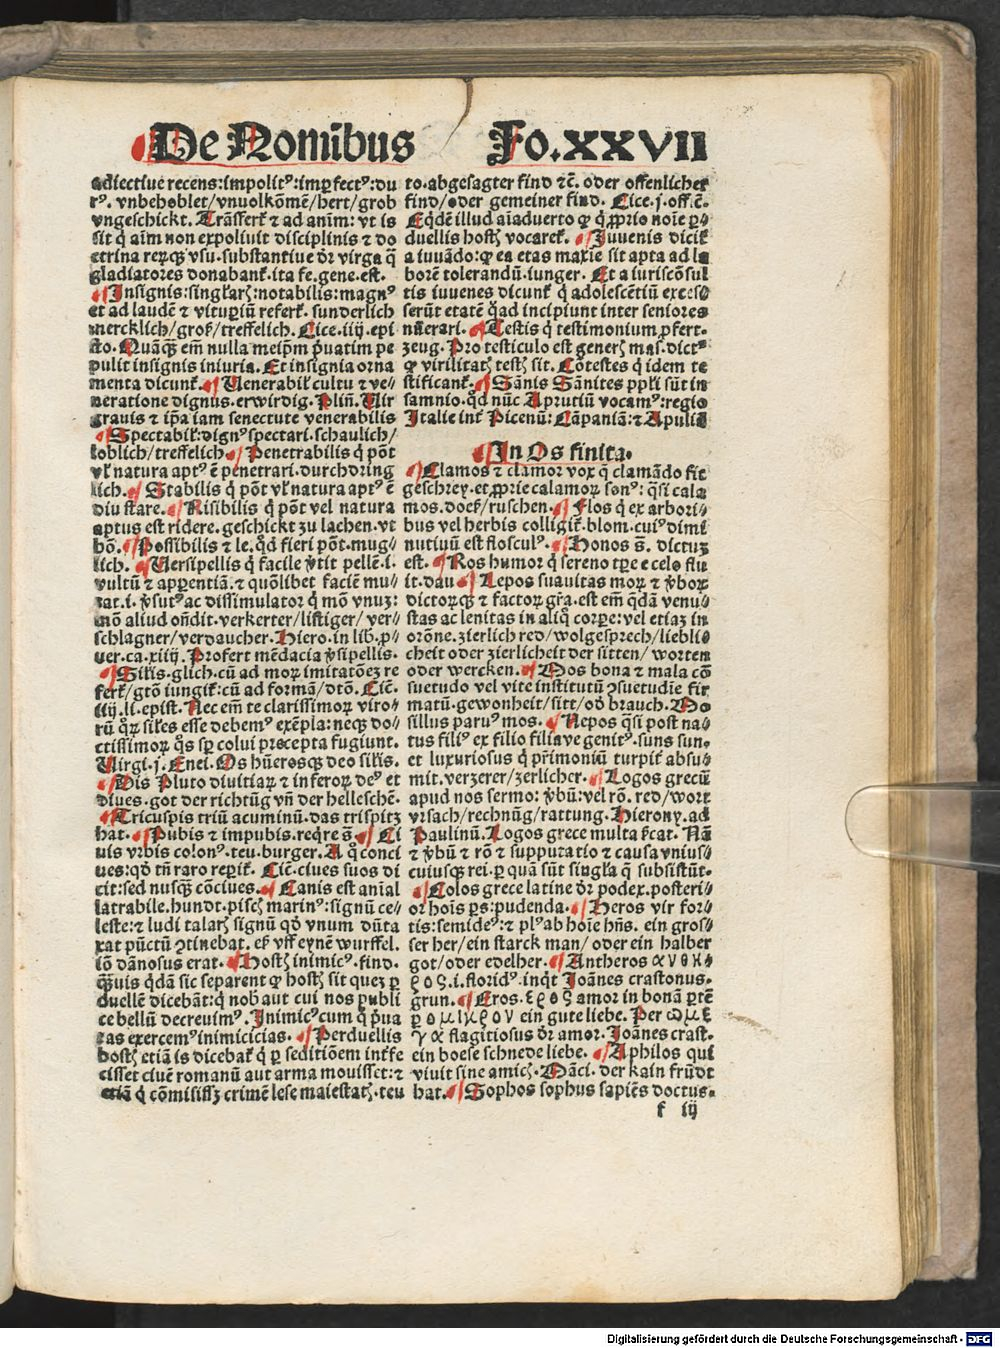 De Nominibus Fo.XXVII
adiectiue recens:impolitꝰ:imꝑfectꝰ:du
rꝰ. vnbehoblet/vnuolkōmē/hert/grob
vngeschickt. Trāsferť ⁊ ad anim: vt is
sit q̇ aīm non expoliuit disciplinis ⁊ do
ctrina rerꝫqꝫ vsu. substantiue d̄r virga q̄
gladiatores donabanť. ita fe. gene. est.
Insignis:singľarꝭ:notabilis:magnꝰ
et ad laudē ⁊ vituꝑiū referť. sunderlich
mercklich/groß/treffelich. Cice. iiij. epi
sto. Quāqꝫ em̄ nulla meip̄m p̄uatim pe
pulit insignis iniuria. Et insignia orna
menta dicunť. Venerabiľ cultu ⁊ ve//
neratione dignus. erwirdig. Plin̄. Vir
grauis ⁊ ip̄a iam senectute venerabilis
Spectabiľ: dignꝰ spectari. schaulich/
loblich/treffelich. Penetrabilis q̇ pōt
vľ natura aptꝰ ē penetrari. durchdring
lich. Stabilis q̇ pōt vľ natura aptꝰ ē
diu stare. Risibilis q̇ pōt vel natura
aptus est ridere. geschickt zu lachen. vt
hō. Possibilis ⁊ le. qd̄ fieri pōt. mug//
lich. Versipellis q̇ facile v̄tit pellē. i.
vultū ⁊ apꝑentiā. ⁊ quōlibet faciē mu//
tat. i. v̄sutꝰ ac dissimulator q̇ mō vnuꝫ:
mō aliud on̄dit. verkerter/listiger/ ver//
schlagner/verdaucher. Hiero. in lib. ꝓ//
uer. ca. xiiij. Profert mēdacia v̄sipellis.
Siľis. glich. cū ad moꝝ imitatōeꝫ re
ferť/gtō iungiť: cū ad formā/dtō. Cic̄.
iij. li. epist. Nec em̄ te clarissimoꝝ viro//
rū qoꝝ siľes esse debemꝰ exēpla: neqꝫ do//
ctissimoꝝ qos sꝑ colui precepta fugiunt.
Virgi. j. Enei. Os hūerosqꝫ deo siľis.
Dis Pluto diuitiaꝝ ⁊ inferoꝝ deꝰ et
diues. got der richtūg vn̄ der helleschē.
Tricuspis triū acuminū. das trispitz
hat. Pubis ⁊ impubis. reqre ā. Ci
uis vrbis colonꝰ. teu. burger. A q̇ conci
ues: qd̄ tn̄ raro reꝑiť. Cic̄. ciues suos di
cit: sed nusqꝫ cōciues. Canis est anīal
latrabile. hundt. piscꝭ marinꝰ: signū ce//
leste: ⁊ ludi talarꝭ signū qd̄ vnum dūta
xat pūctū ꝯtinebat. eß vff eynē wurffel.
iō dānosus erat. Hostꝭ inimicꝰ. find.
quis qdā sic separent ꝙ hostꝭ sit quez ꝑ
duellē dicebāt: q̇ nob̄ aut cui nos publi
ce bellū decreuimꝰ. Inimicꝰ cum q̇ p̄ua
tas exercemꝰ inimicicias. Perduellis
hostꝭ etiā is dicebať q̇ ꝑ seditiōem intfe
cisset ciuē romanū aut arma mouisset: ⁊
etiā q̇ cōmisissꝫ crimē lese maiestatꝭ. teu
to. abgesagter find ⁊c̄. oder offenlicher
find/oder gemeiner find. Cice. j. off. c̄.
Eqdē illud aīaduerto ꝙ q̇ ꝓprio noīe ꝑ//
duellis hostꝭ vocareť. Iuuenis diciť
a iuuādo: ꝙ ea etas maxīe sit apta ad la
borē tolerandū. iunger. Et a iuriscōsul
tis iuuenes dicunť q̇ adolescētiū exces//
serūt etatē qad incipiunt inter seniores
nūerari. Testis q̇ testimonium ꝑfert.
zeug. Pro testiculo est generꝭ mas. dictꝰ
ꝙ virilitatꝭ testꝭ sit. Cōtestes q̇ idem te
stificanť. Sānis Sānites ppľi sūt in
samnio. qd̄ nūc Aprutiū vocamꝰ: regio
Italie int Picenū: Cāpaniā: ⁊ Apuliā
In Os finita.
Clamos ⁊ clamor vox q̇ clamādo fit
geschrey. et ꝓprie calamoꝝ sonꝰ: q̄si cala
mos. doeß/ruschen. Flos q̇ ex arbori//
bus vel herbis colligiť. blom. cuiꝰ dimi
nutiuū est flosculꝰ. Honos s̄. dictuꝫ
est. Ros humor q̇ sereno tp̄e e celo flu
it. dau. Lepos suauitas moꝝ ⁊ v̄boꝝ
dictoꝝqꝫ ⁊ factoꝝ gr̄a. est em̄ qdā venu//
stas ac lenitas in aliq̇ corꝑe: vel etiaꝫ in
orōne. zierlich red/wolgesprech/liebli//
cheit oder zierlicheit der sitten/ worten
oder wercken. Mos bona ⁊ mala cō
suetudo vel vite institutū ꝯsuetudīe fir
matū. gewonheit/sitt/od̄ brauch. Mo
sillus paruꝰ mos. Nepos q̄si post na//
tus filiꝰ ex filio filiave genitꝰ. suns sun.
et luxuriosus q̇ p̄rimoniū turpiť absu//
mit. verzerer/zerlicher. Logos grecū
apud nos sermo: v̄bū: vel rō. red/wort
vrsach/rechnūg/rattung. Hierony. ad
Paulinū. Logos grece multa sc̄at. Nā
⁊ v̄bū ⁊ rō ⁊ supputatio ⁊ causa vnius//
cuiusqꝫ rei. ꝑ quā sūt singľa q̇ subsistūt.
Colos grece latine d̄r podex. posteri//
or hoīs ꝑs: pudenda. Heros vir for//
tis: semideꝰ: ⁊ plꝰ ab hoīe hn̄s. ein gros//
ser her/ein starck man/ oder ein halber
got/oder edelher. Antheros ανθη//
ρος. i. floridꝰ. inqt Joānes crastonus.
grun. Eros. ερος amor in bonā ꝑtē
ꝑ ομικρον ein gute liebe. Per ωμε
γα flagitiosus d̄r amor. Joānes crast.
ein boese schnede liebe. Aphilos qui
viuit sine amicꝭ. Māci. der kain frūdt
hat. Sophos sophus sapiēs doctus.
f iij
Digitalisierung gefördert durch die Deutsche Forschungsgemeinschaft - DFG